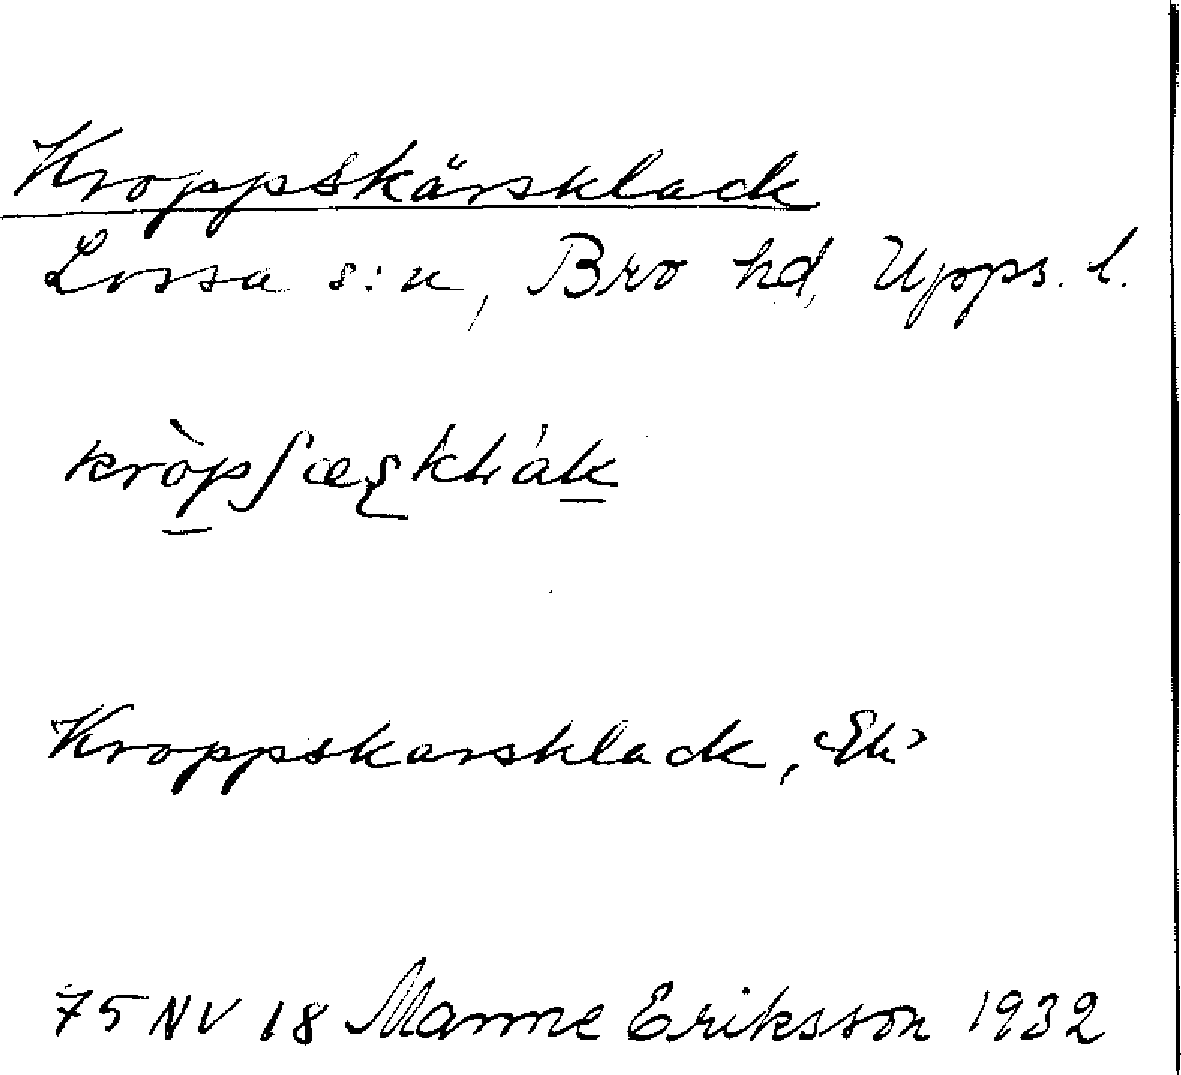 Kroppskärsklack
Lossa s:n, Bro hd, Upps. l.
kròpʃæʂklák
Kroppskarsklack, Ek
75 NV 18 Manne Eriksson 1932